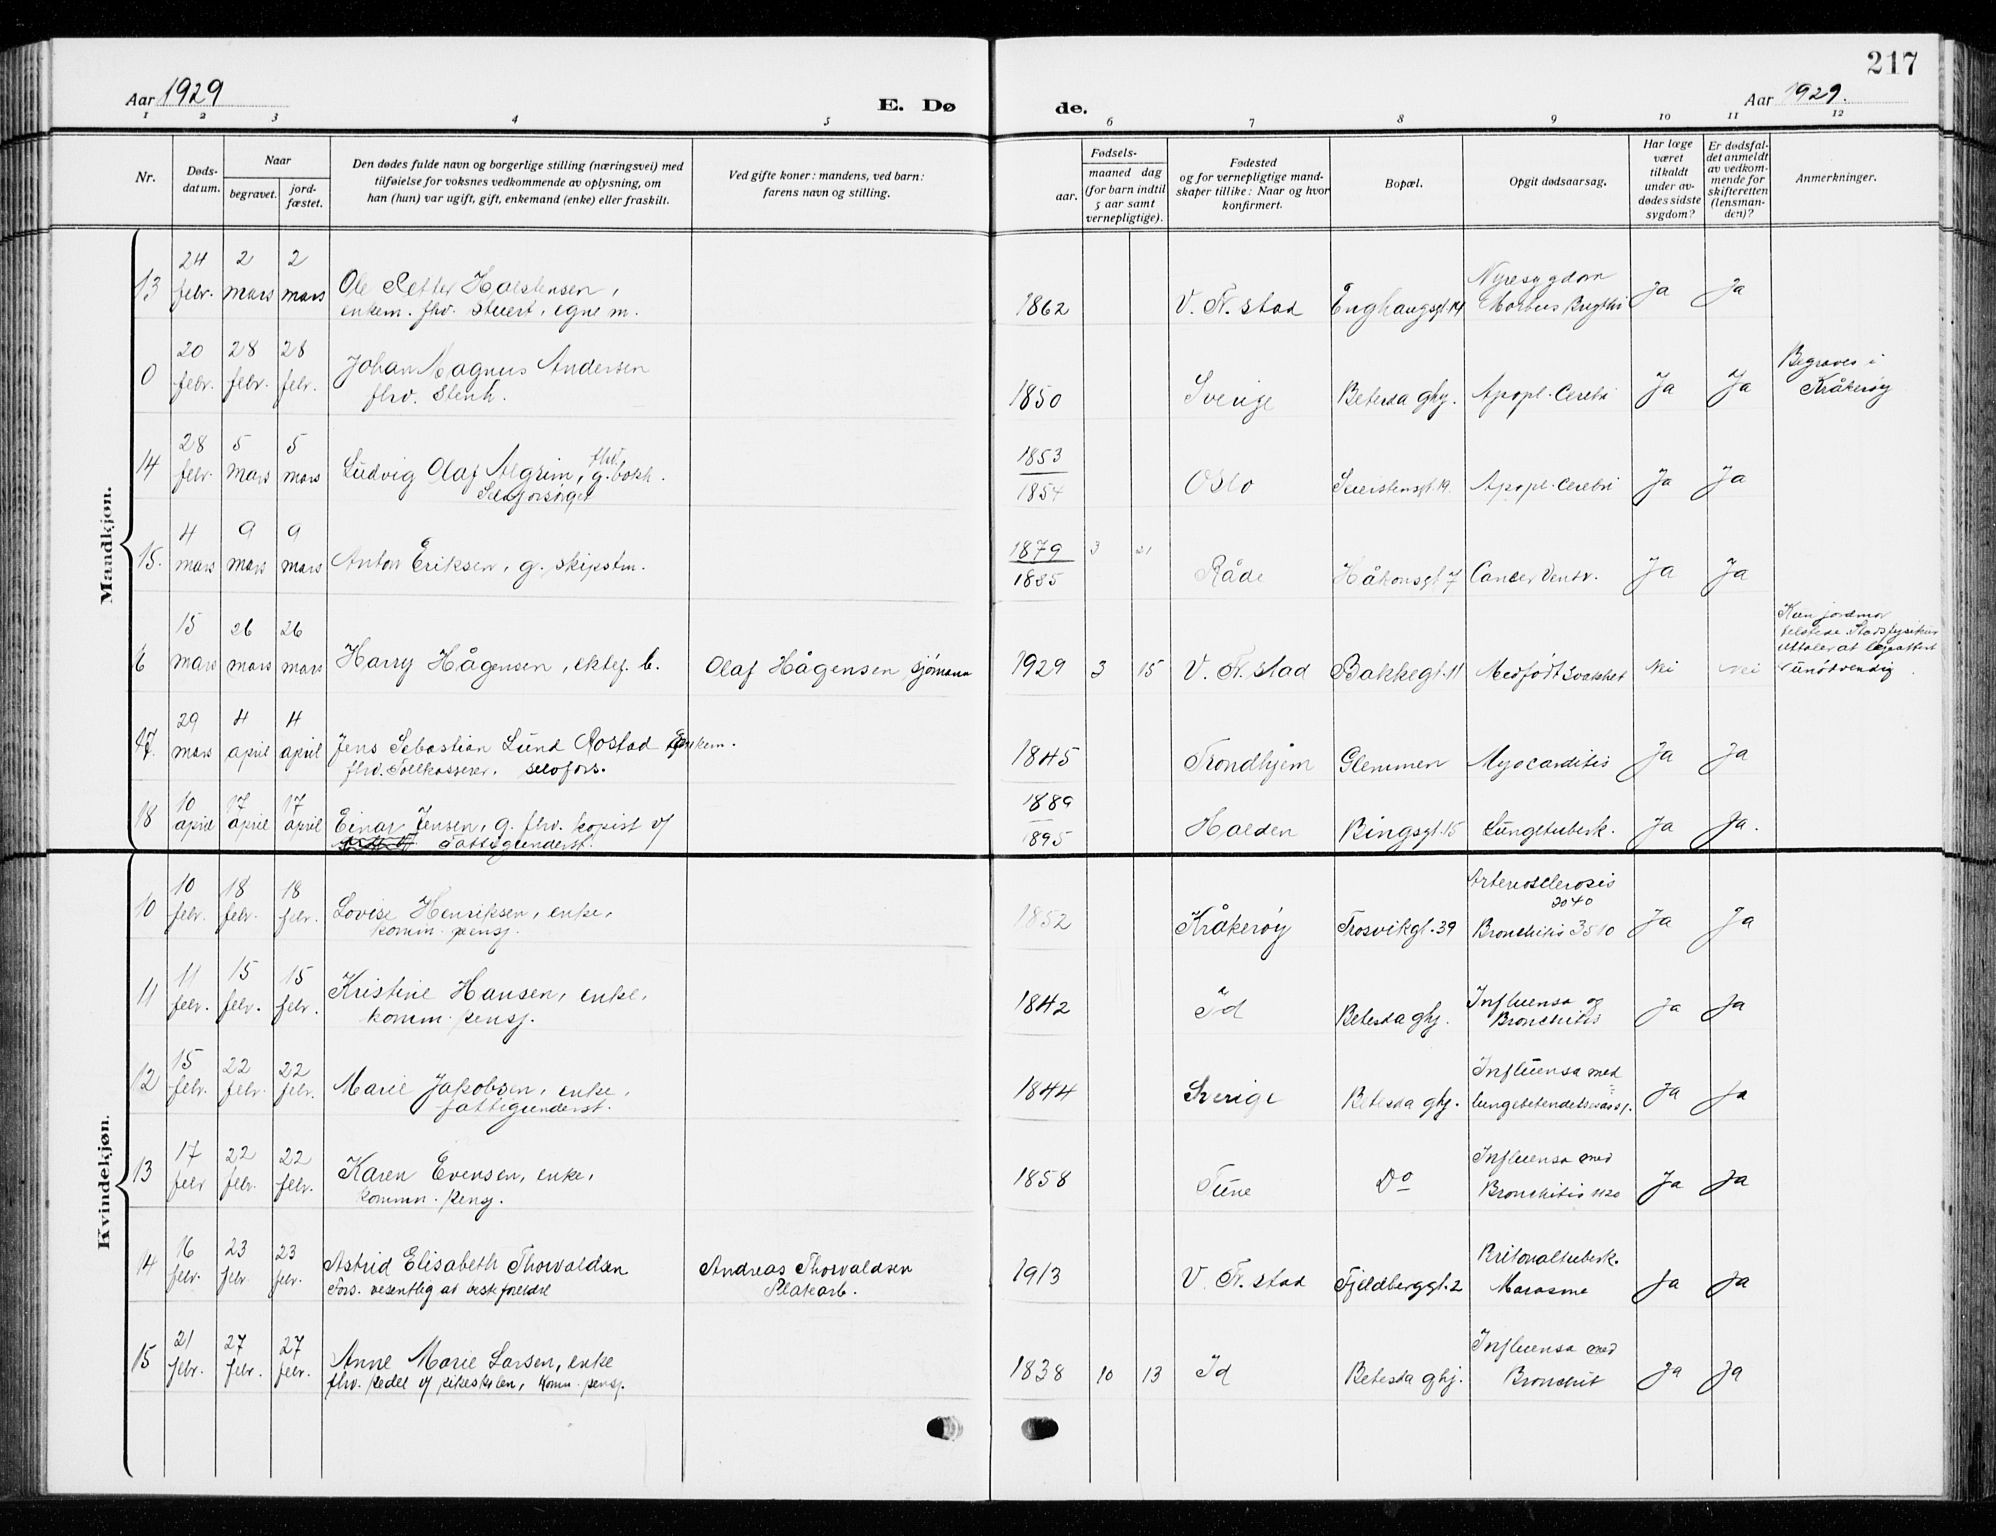 217
Aar 1929
E. Dø
de.
Aar 1929.
1 2 3 4 5 6 7 8 9 10 11 12
Nr.
Dødsdatum.
Naar
begravet.
jordfæstet.
Den dødes fulde navn og borgerlige stilling (næringsvei) med
tilføielse for voksnes vedkommende av oplysning, om
han (hun) var ugift, gift, enkemand (enke) eller fraskilt.
Ved gifte koner: mandens, ved barn:
farens navn og stilling.
Fødsels-
aar.
maaned dag
(for barn indtil
5 aar samt
vernepligtige).
Fødested
og for vernepligtige mandskaper tillike: Naar og hvor
konfirmert.
Bopæl.
Opgit dødsaarsag.
Har læge
været
tilkaldt
under avdødes sidste
sygdom?
Er dødsfaldet anmeldt
av vedkommende for
skifteretten
(lensmanden)?
Anmerkninger.
Mandkjøn.
13 24 febr. 2 mars 2 mars Ole Petter Halstensen, 1862 V. Fr. stad Enghaugsgt. 14 Nyresygdom Ja Ja
enkem. fhv. stuert, egne m. Morbus Brigthi
0 20 febr. 28 febr. 28 febr. Johan Magnus Andersen 1850 Sverige Betesda ghj. Apopl. Cerebri Ja Ja Begraves i
fhv. Stenh. Kråkerøy
14 28 febr. 5 mars 5 mars Ludvig Olaf Algrim, fhv. g. bokh. 1853 1854 Oslo Apopl. Cerebri Ja Ja
Selvforsørget
15. 4 mars 9 mars 9 mars Anton Eriksen, g. skipstm. 1879 1885 3 21 Råde Håkonsgt. 7 Cancer Ventr. Ja Ja
6 15 mars 26 mars 26 mars Harry Hågensen, ektef. b. Olaf Hågensen sjømann 1929 3 15 V. Fr. stad Bakkegt. 11 Medfødt svakhet Nei Nei Kun jordmor
tilstede. Stadsfysikus
uttaler at legeattest
unødvendig
17. 29 mars 4 april 4 april Jens Sebastian Lund Rostad enkem. 1845 Trondhjem Glemmen Myocarditis Ja Ja
fhv. Tollkasserer. selvfors.
18 10 april 17 april 17 april Einar Jensen, g. fhv. kopist v/ 1889 1895 Halden Bingsgt. 15 Lungetuberk. Ja Ja.
Fattigunderst.
Kvindekjøn.
10 10 febr. 18 febr. 18 febr. Lovise Henriksen, enke, 1852 Kråkerøy Trosvikgt. 39 Arteriosclerosis 2040 Ja Ja
komm. pensj. Bronchitis 3510
11 11 febr. 15 febr. 15 febr. Kristine Hansen, enke, 1842 Id Betesda ghj. Influensa og Ja Ja
komm. pensj. Bronchitis
12 15 febr. 22 febr. 22 febr. Marie Jakobsen, enke, 1844 Sverige Betesda ghj. Influensa med Ja Ja
fattigunderst.
13 17 febr 22 febr. 22 febr. Karen Evensen, enke, 1858 Tune Do Influensa med Ja Ja
kommn. pensj. Bronchitis 1120
14 16 febr. 23 febr. 23 febr. Astrid Elisabeth Thorvaldsen Andreas Thorvaldsen 1913 V. Fr. stad Fjeldberggt. 2 Ja Ja
Fors. vesentlig av besteforeldre Platearb. Marasme
15 21 febr. 27 febr. 27 febr. Anne Marie Larsen, enke 1838 10 13 Id Betesda ghj. Influensa med Ja Ja
fhv. pedel v/ pikeskolen, komm. pensj. Bronchit